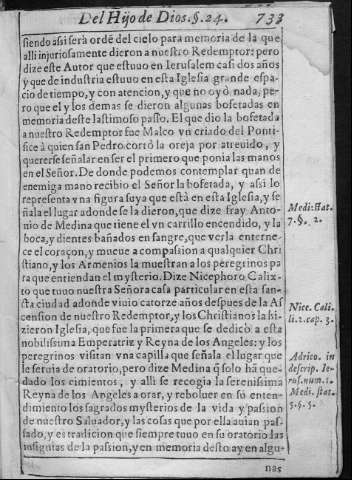 Del Hijo de Dios. §. 24. 733
siendo assi serà ordẽ del cielo para memoria de la que
alli injuriosamente dieron a nuestro Redemptor: pero
dize este Autor que estuuo en Ierusalem casi dos años
y que de industria estuuo en esta Iglesia grande espa-
cio de tiempo, y con atencion, y que no oyò nada, pe-
ro que el y los demas se dieron algunas bofetadas en
memoria deste lastimoso passo. El que dio la bofetada
a nuestro Redemptor fue Malco vn criado del Ponti-
fice à quien san Pedro cortò la oreja por atreuido, y
quererse señalar en ser el primero que ponia las manos
en el Señor. De donde podemos contemplar quan de
enemiga mano recibio el Señor la bofetada, y assi lo
representa vna figura suya que està en esta Iglesia, y se
ñala el lugar adonde se la dieron, que dize fray Anto-
nio de Medina que tiene el vn carrillo encendido, y la
boca, y dientes bañados en sangre, que verla enterne-
ce el coraçon, y mueue a compassion a qualquier Chri
stiano, y los Armenios la muestran a los peregrinos pa
ra que entiendan el mysterio. Dize Nicephoro Calix-
to que tuuo nuestra Señora casa particular en esta san-
cta ciudad adonde viuio catorze años despues de la As
cension de nuestro Redemptor, y los Christianos la hi-
zieron Iglesia, que fue la primera que se dedicò a esta
nobilissima Emperatriz y Reyna de los Angeles: y los
peregrinos visitan vna capilla que señala el lugar que
le seruia de oratorio, pero dize Medina q̃ solo hã que-
dado los cimientos, y alli se recogia la serenissima
Reyna de los Angeles a orar, y reboluer en su enten-
dimiento los sagrados mysterios de la vida y passion
de nuestro Saluador, y las cosas que por ella auian pas-
sado, y es tradicion que siempre tuuo en su oratorio las
insignias de la passion, y en memoria desto ay en algu-
nas
Medi. stat.
7. §. 2.
Nice. Cali.
li. 2. cap. 3.
Adrico. in
descrip. Ie-
ros. num. 1.
Medi. stat.
5. §. 5.